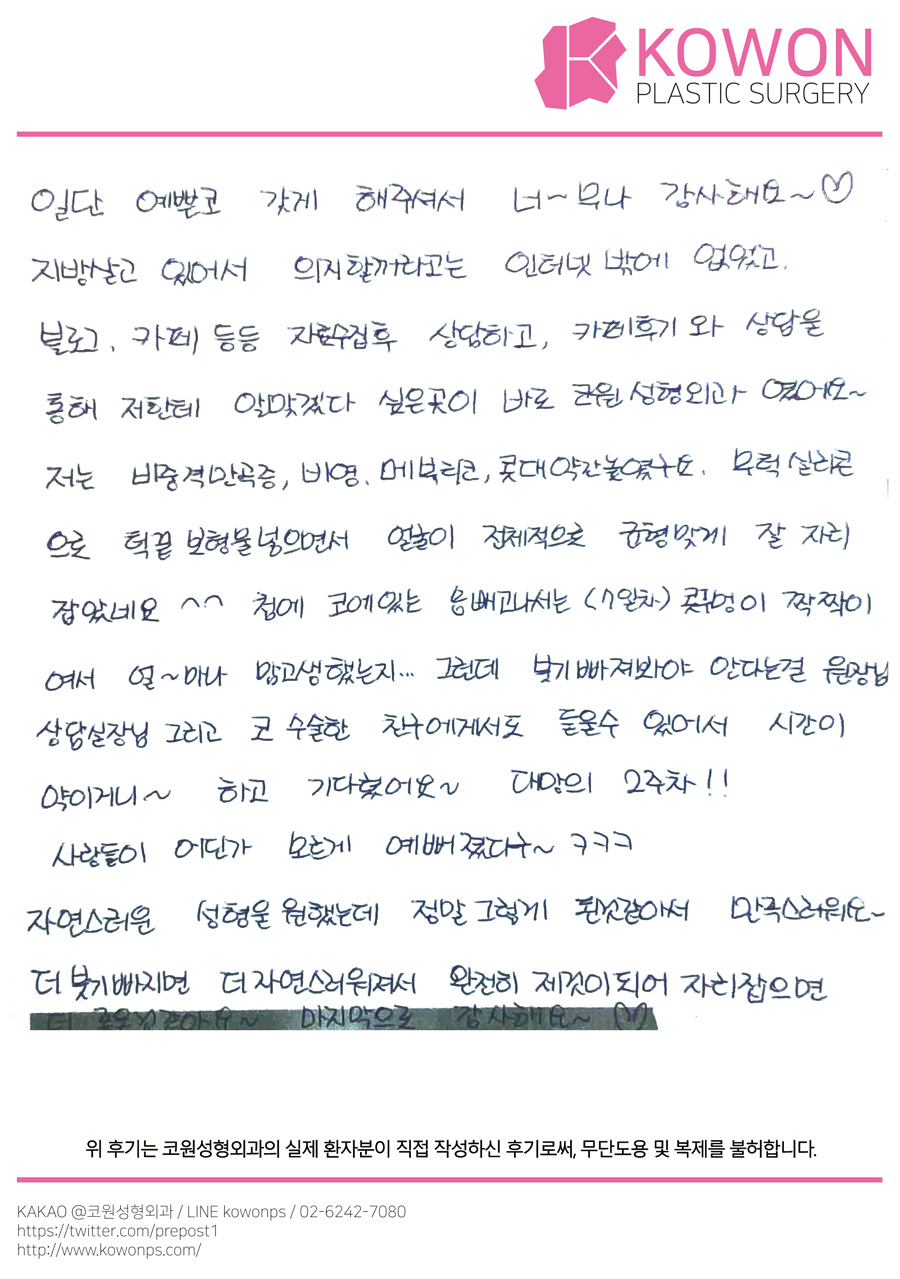 KOWON
PLASTIC SURGERY
일단 예쁜코 갖게 해주셔서 너~무나 감사해요~♡
지방살고 있어서 의지할꺼라고는 인터넷 밖에 없었고.
블로그, 카페 등등 자료수집후 상담하고, 카페후기와 상담을
통해 저한테 알맞겠다 싶은곳이 바로 코원성형외과 였어요~
저는 비중격만곡증, 비염, 메부리코, 콧대약간높였구요. 무턱실리콘
으로 턱끝 보형물넣으면서 얼굴이 전체적으로 균형맞게 잘 자리
잡았네요 ^^ 첨에 코에있는 솜빼고나서는 (7일차) 콧구멍이 짝짝이
여서 얼~마나 맘고생했는지... 그런데 붓기빠져봐야 안다는걸 원장님
상담실장님 그리고 코 수술한 친구에게서도 들을수 있어서 시간이
약이거니~ 하고 기다렸어요~ 대망의 2주차!!
사람들이 어딘가 모르게 예뻐졌다구~ ㅋㅋㅋ
자연스러운 성형을 원했는데 정말 그렇게 된것같아서 만족스러워요~
더 붓기빠지면 더 자연스러워져서 완전히 제것이되어 자리잡으면
더 마지막으로 감사해요~ ♡
위 후기는 코원성형외과의 실제 환자분이 직접 작성하신 후기로써, 무단도용 및 복제를 불허합니다.
KAKAO @코원성형외과 / LINE kowonps / 02-6242-7080
https://twitter.com/prepost1
http://www.kowonps.com/